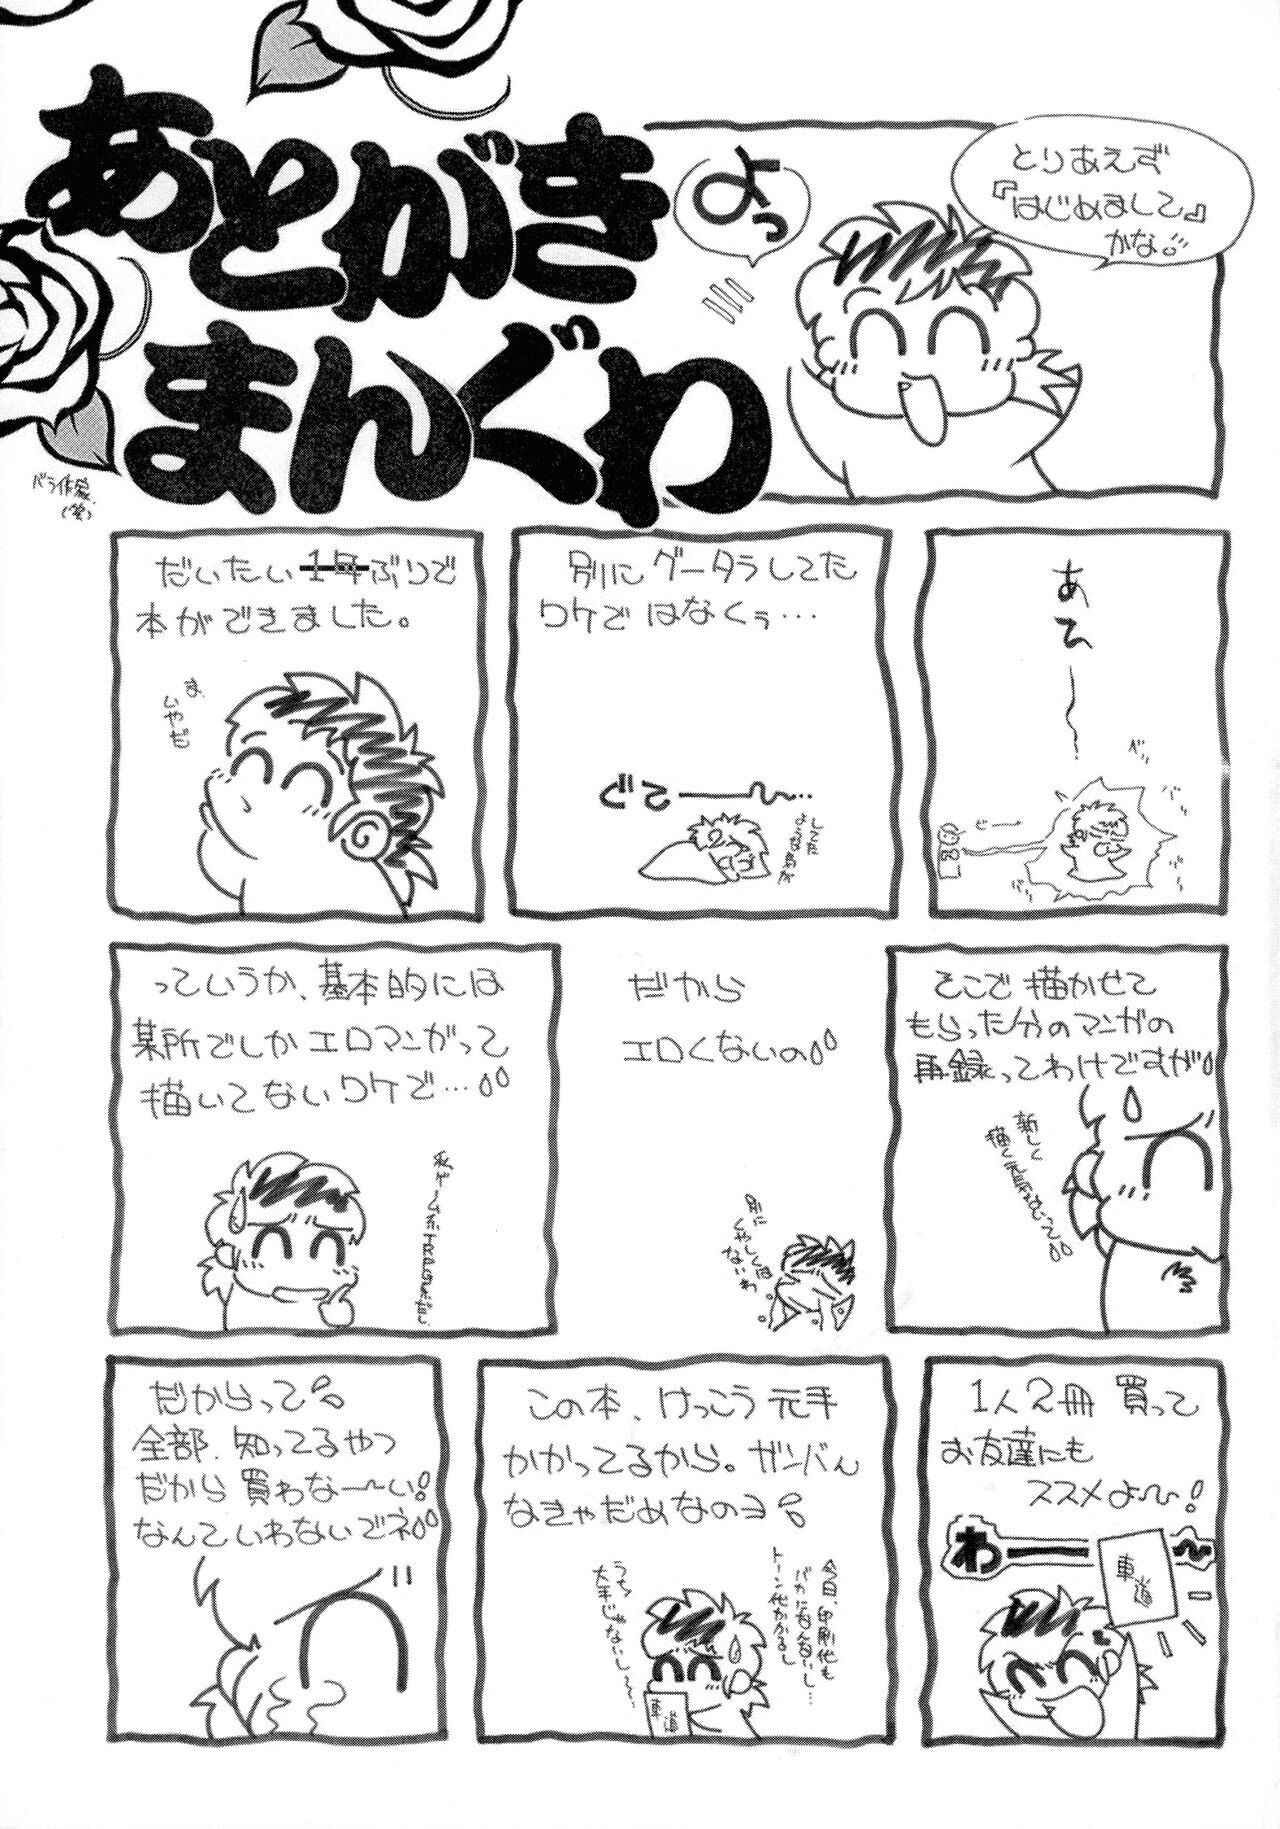 あとがき
まんぐわ
(笑)
よっ
とりあえず
『はじめまして』
かな。
だいたい1年ぶりで
本ができました。
ま、
いやだ
別にグータラしてた
ワケではなくぅ…
ぐて〜…
っていうか、基本的には
某所でしかエロマンガって
描いてないワケで…
だから
エロくないの
別に
くやしくは
ないわ
そこで描かせて
もらった分のマンガの
再録ってわけですが
新しく
だからって
全部、知ってるやつ
だから買わな〜い!
なんていわないでネ
この本、けっこう元手
かかってるから。ガンバん
なきゃだめなのヨ
今日、印刷代も
バカになんないし…
トーン代かかるし
うち
大手じゃないし〜…
車道
1人2冊買って
お友達にも
ススメよ〜!
わ〜
車道